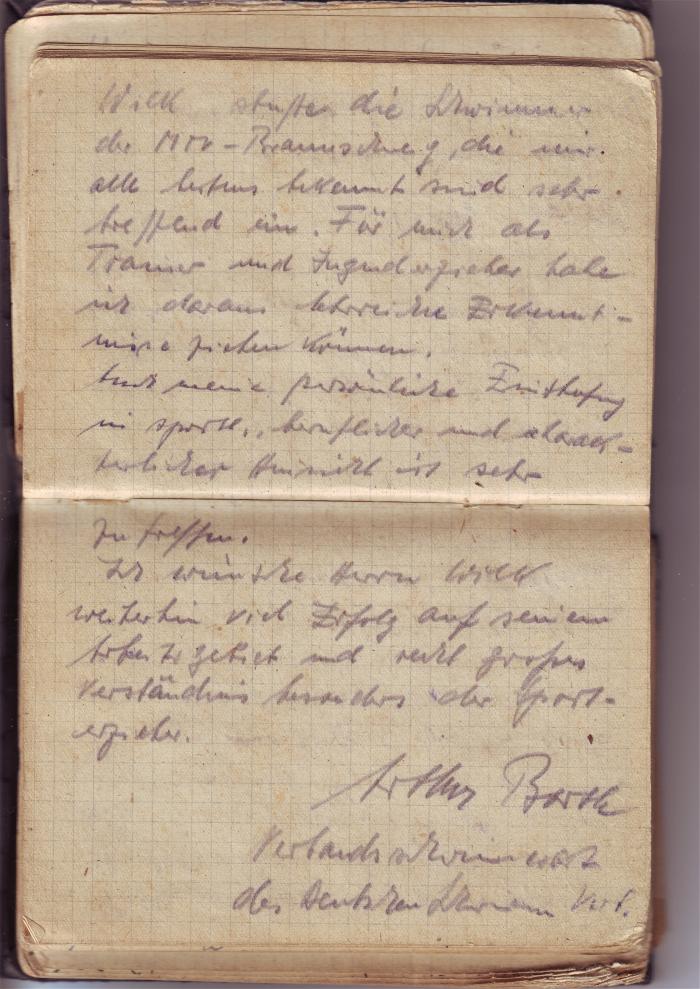 Wilk stufte die Schwimmer
der MTV-Braunschweig, die mir
alle bestens bekannt sind sehr
treffend ein. Für mich als
Trainer und Jugenderzieher habe
ich daraus lehrreiche Erkennt-
nisse ziehen können.
Auch meine persönliche Einstufung
in sportl., beruflicher und charak-
terlicher Hinsicht ist sehr
zutreffen.
Ich wünsche Herrn Wilk
weiterhin viel Erfolg auf seinem
Arbeitsgebiet und recht großes
Verständnis besonders der Sport-
erzieher.
Arthur Barth
Verbandsschwimmwart
des Deutschen Schwimm Verb.